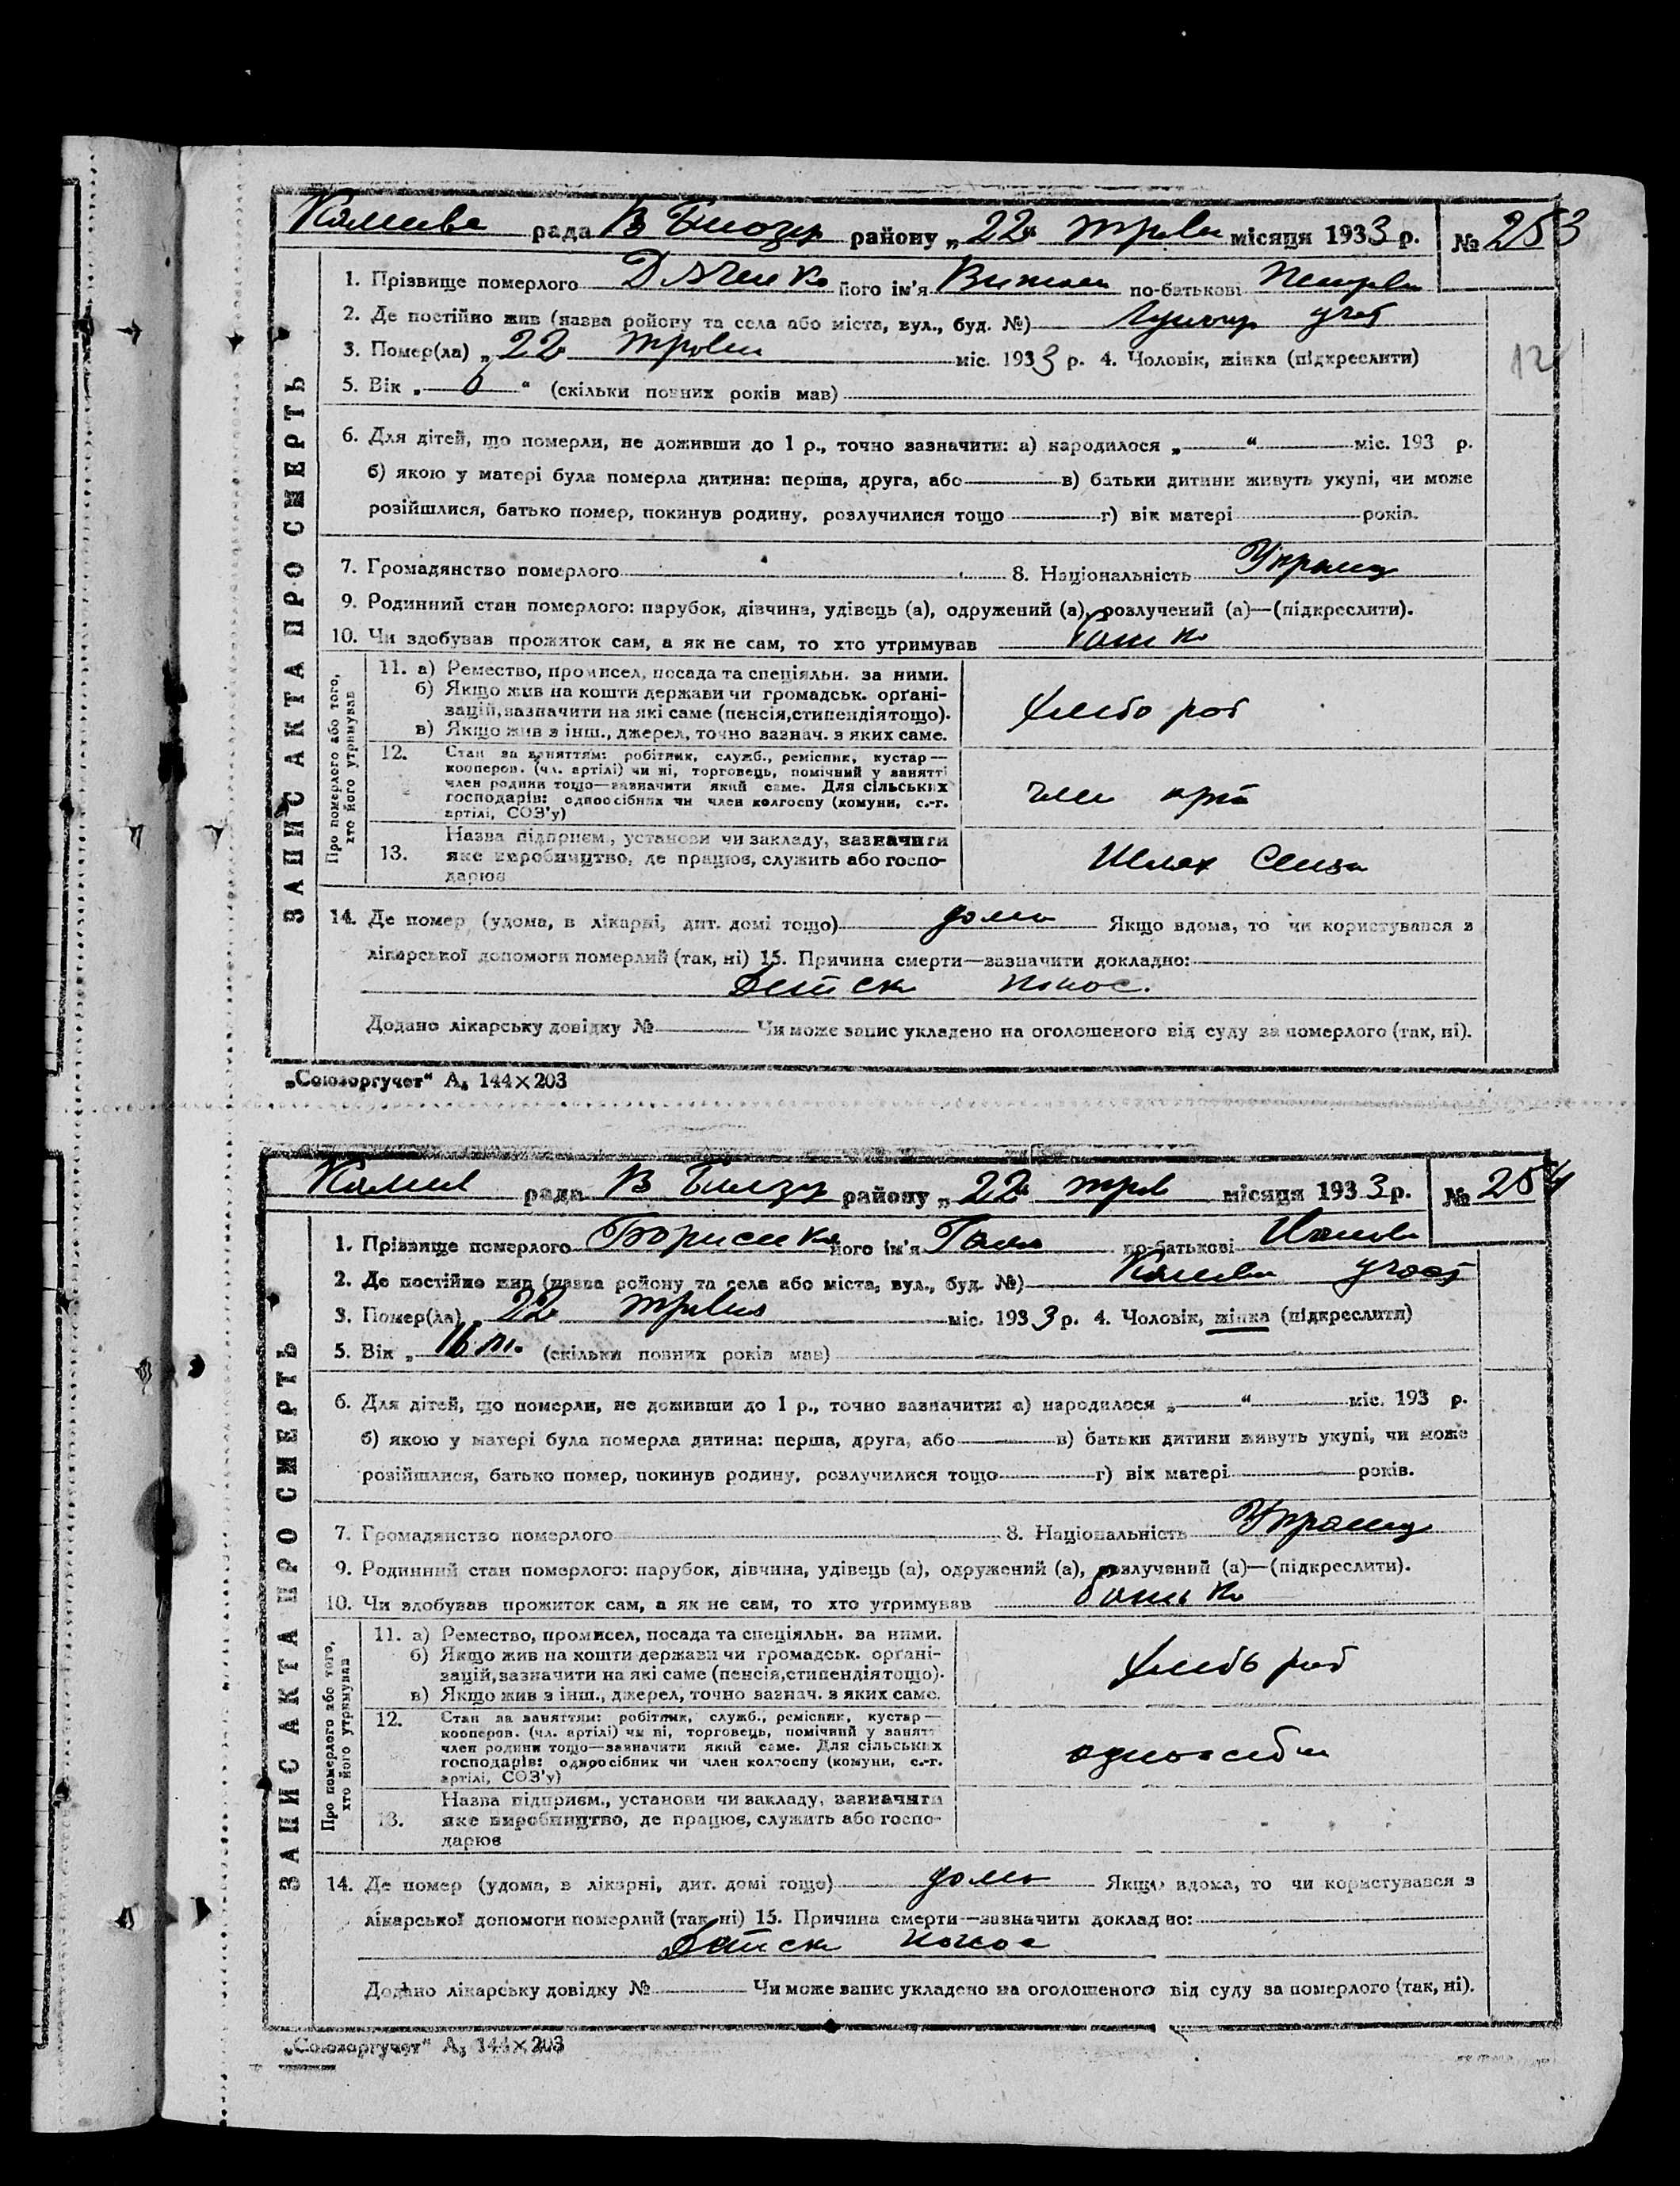 рада району „22“ місяця 1933 р. № 253
1. Прізвище померлого Дяченко його ім'я по-батькові
2. Де постійно жив (назва ройону та села або міста, вул., буд. №)
3. Помер(ла) „22 міс. 1933 р. 4. Чоловік, жінка (підкреслити)
5. Вік „ 6 “ (скільки повних років мав)
6. Для дітей, що померли, не доживши до 1 р., точно зазначити: а) народилося „ “ міс. 193 р.
б) якою у матері була померла дитина: перша, друга, або в) батьки дитини живуть укупі, чи може
розійшлися, батько помер, покинув родину, розлучилися тощо г) вік матері років.
7. Громадянство померлого 8. Національність Украінц
9. Родинний стан померлого: парубок, дівчина, удівець (а), одружений (а), розлучений (а)—(підкреслити).
10. Чи здобував прожиток сам, а як не сам, то хто утримував батько
ЗАПИС АКТА ПРО СМЕРТЬ
Про померлого або того, хто його утримував
11. а) Ремество, промисел, посада та спеціяльн. за ними.
б) Якщо жив на кошти держави чи громадськ. органі-
зацій, зазначити на які саме (пенсія, стипендія тощо).
в) Якщо жив з інш., джерел, точно зазнач. з яких саме.
хлебороб
12. Стан за заняттям: робітник, служб., ремісник, кустар—
кооперов. (чл. артілі) чи ні, торговець, помічний у занятті
член родини тощо—зазначити який саме. Для сільських
господарів: одноосібник чи член колгоспу (комуни, с.-г.
артілі, СОЗ'у)
член арт
13. Назва підприєм., установи чи закладу, зазначити
яке виробництво, де працює, служить або госпо-
дарює
Шлях
14. Де помер (удома, в лікарні, дит. домі тощо) дома Якщо вдома, то чи користувався з
лікарської допомоги померлий (так, ні) 15. Причина смерти—зазначити докладно:
Детск понос.
Додано лікарську довідку № Чи може запис укладено на оголошеного від суду за померлого (так, ні).
„Союзоргучет“ А₅ 144×203
12
рада району „22“ трав місяця 1933 р. № 254
1. Прізвище померлого Борисенко його ім'я Галя по-батькові
2. Де постійно жив (назва ройону та села або міста, вул., буд. №)
3. Помер(ла) „22 травня міс. 1933 р. 4. Чоловік, жінка (підкреслити)
5. Вік „ 16 м. (скільки повних років мав)
6. Для дітей, що померли, не доживши до 1 р., точно зазначити: а) народилося „ “ міс. 193 р.
б) якою у матері була померла дитина: перша, друга, або в) батьки дитини живуть укупі, чи може
розійшлися, батько помер, покинув родину, розлучилися тощо г) вік матері років.
7. Громадянство померлого 8. Національність Украінц
9. Родинний стан померлого: парубок, дівчина, удівець (а), одружений (а), розлучений (а)—(підкреслити).
10. Чи здобував прожиток сам, а як не сам, то хто утримував батько
ЗАПИС АКТА ПРО СМЕРТЬ
Про померлого або того, хто його утримував
11. а) Ремество, промисел, посада та спеціяльн. за ними.
б) Якщо жив на кошти держави чи громадськ. органі-
зацій, зазначити на які саме (пенсія, стипендія тощо).
в) Якщо жив з інш., джерел, точно зазнач. з яких саме.
хлебороб
12. Стан за заняттям: робітник, служб., ремісник, кустар—
кооперов. (чл. артілі) чи ні, торговець, помічний у занятті
член родини тощо—зазначити який саме. Для сільських
господарів: одноосібник чи член колгоспу (комуни, с.-г.
артілі, СОЗ'у)
одноосібн
13. Назва підприєм., установи чи закладу, зазначити
яке виробництво, де працює, служить або госпо-
дарює
14. Де помер (удома, в лікарні, дит. домі тощо) дома Якщо вдома, то чи користувався з
лікарської допомоги померлий (так, ні) 15. Причина смерти—зазначити докладно:
Детск понос
Додано лікарську довідку № Чи може запис укладено на оголошеного від суду за померлого (так, ні).
„Союзоргучет“ А₅ 144×203